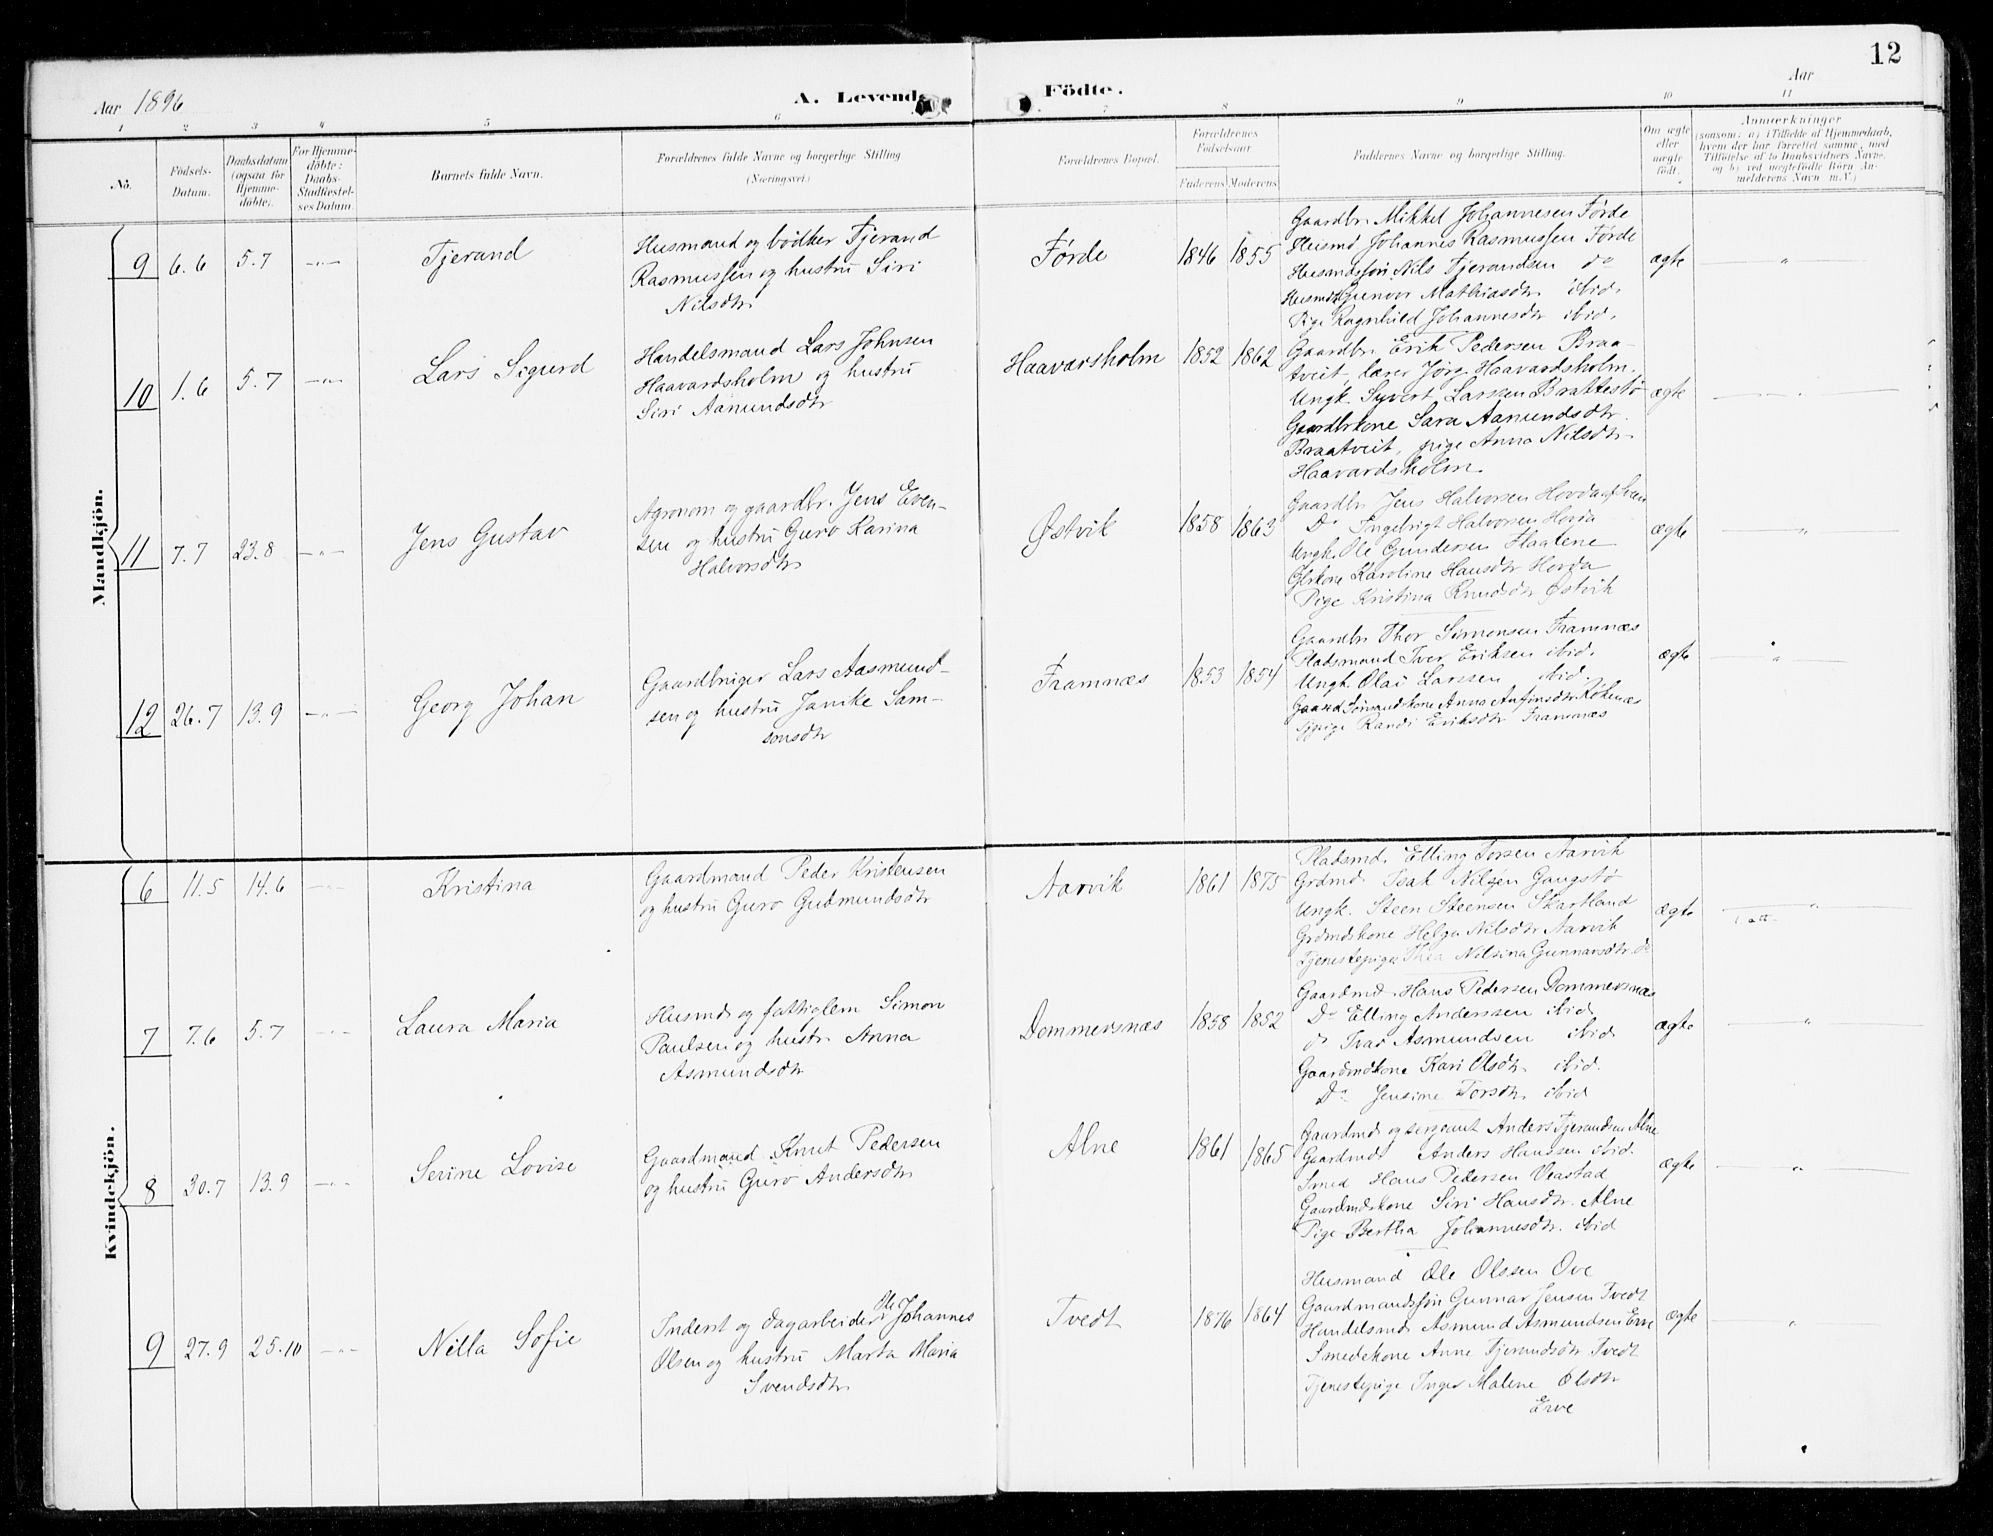 12
Aar 1896
A. Levende Födte.
Aar
1 2 3 4 5 6 7 8 9 10 11
No.
Födsels-Datum.
Daabsdatum (ogsaa for Hjemmedöbte).
For Hjemmedöbte: Daabs-Stadfæstelses Datum.
Barnets fulde Navn.
Forældrenes fulde Navne og borgerlige Stilling (Næringsvei.)
Forældrenes Bopæl.
Forældrenes Födselsaar
Faderens Moderens
Faddernes Navne og borgerlige Stilling.
Om ægte eller uægte født.
Anmærkninger
(saasom: a) i Tilfælde af Hjemmedaab,
hvem der har forrettet samme, med
Tilföielse af to Daabsvidners Navne,
og b) ved uægtefödte Börn An-
melderens Navn m.V.)
Mandkjön.
9 6.6 5.7 -"-
Tjerand
Husmand og bødker Tjerand
Rasmussen og hustru Siri
Nilsdtr
Førde
1846 1855
Gaardbr. Mikkel Johannesen Førde
Husmd Johannes Rasmussen Førde
Husmandssøn Nils Tjerandsen do
Gunvor Mathiasdtr ibid.
Pige Ragnhild Johannesdtr ibid.
ægte
"
10 1.6 5.7 -"-
Lars Sigurd
Handelsmand Lars Johnsen
Haavardsholm og hustru
Siri Aamundsdtr
Haavarsholm
1852 1862
Gaardbr. Erik Pedersen Braa-
tveit, lærer Jørg. Haavardsholm.
Ungk. Syvert Larssen Brattestø
Gaardbrkone Sara Aamundsdtr.
Braatveit, pige Anna Nilsdtr
Haavardsholm.
ægte
11 7.7 23.8 -"-
Jens Gustav
Agronom og gaardbr. Jens Even-
sen og hustru Guro Karina
Halvorsdtr
Østvik
1858 1863
Gaardbr Jens Halvorsen Hovda
Do Ingebrigt Halvorsen Hovda
Ungk. Ole Gundersen Haatene
Karoline Hansdtr Hovda
Pige Kristina Knudsdtr Østvik
ægte
"
12 26.7 13.9 -"-
Georg Johan
Gaardbruger Lars Aasmund-
sen og hustru Janike Sam-
sonsdtr
Framnæs
1853 1854
Gaardbr Thor Simonsen Framnæs
Pladsmand Iver Eriksen ibid.
Ungk. Olai Larssen ibid.
Anna
pige Randi Eriksdtr Framnæs
ægte
"
Kvindekjön.
6 11.5 14.6 -"-
Kristina
Gaardmand Peder Kristensen
og hustru Guro Gudmundsdtr
Aarvik
1861 1875
Pladsmd. Elling Torsen Aarvik
Grdmd. Isak Nilsen Gangstø
Ungk. Steen Steensen Skartland
Grdmdskone Helga Nilsdtr Aarvik
Tjenestepige Thea Nilsina Gunnarsdtr. do
ægte
"
7 7.6 5.7 -"-
Laura Maria
Husmd og fattiglem Simon
Paulsen og hustr. Anna
Asmundsdtr
Dommersnæs
1858 1852
Gaardmd. Hans Pedersen Dommersnæs
Do Elling Anderssen ibid
do Ivar Asmundsen ibid
Gaardmdkone Kari Olsdtr ibid.
Do Jensine Torsdtr ibid
ægte
"
8 30.7 13.9 -"-
Serine Lovise
Gaardmand Knut Pedersen
og hustru Guro Andersdtr
Alne
1861 1865
Gaardmd og sergeant Anders Tjerandsen Alne
Gaardmd Anders Hanssen ibid.
Smed Hans Pedersen Veastad
Gaardmdskone Siri Hansdtr. Alne
Pige Bertha Johannesdtr. ibid
ægte
"
9 27.9 25.10 -"-
Nilla Sofie
Inderst og dagarbeider Ole Johannes
Olsen og hustru Marta Maria
Svendsdtr
Tvedt
1876 1864
Husmand Ole Olssen Ove
Gaardmandssøn Gunnar Jensen Tvedt
Handelsmd Asmund Asmundsen Erve
Smedekone Anne Tjerandsdtr Tvedt
Tjenestepige Inger Malene Olsdtr
Erve
ægte
"